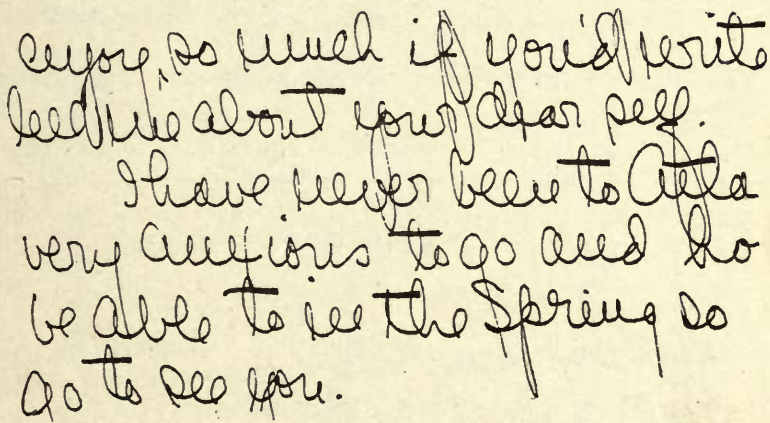 enjoy, so much if you'd write
tell me about your dear self.
I have never been to Atla
very anxious to go and ho
be able to in the Spring so
go to see you.